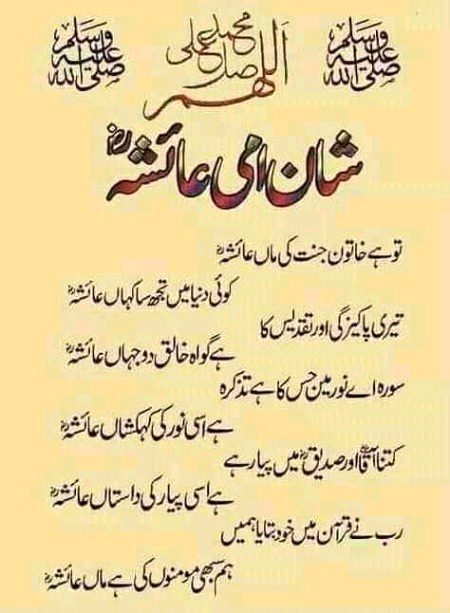 صلى الله عليه وسلم
اللهم صل على محمد
صلى الله عليه وسلم
شان امی عائشہؓ
تو ہے خاتون جنت کی ماں عائشہؓ
کوئی دنیا میں تجھ سا کہاں عائشہؓ
تیری پاکیزگی اور تقدیس کا
ہے گواہ خالق دو جہاں عائشہؓ
سورہ اے نور مین جس کا ہے تذکرہ
ہے اسی نور کی کہکشاں عائشہؓ
کتنا آقاﷺ اور صدیقؓ میں پیار ہے
ہے اسی پیار کی داستاں عائشہؓ
رب نے قرآن میں خود بتایا ہمیں
ہم سبھی مومنوں کی ہے ماں عائشہؓ